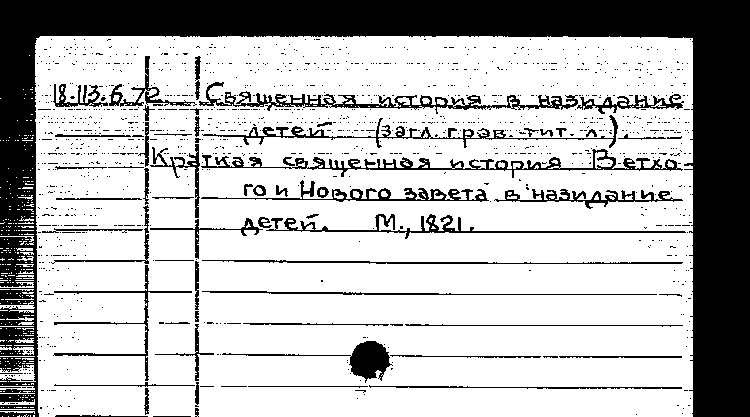 18.113.6.72 Священная история в назидание
детей (загл. грав. тит. л.).
Краткая священная история Ветхо-
го и Нового завета в назидание
детей. М., 1821.